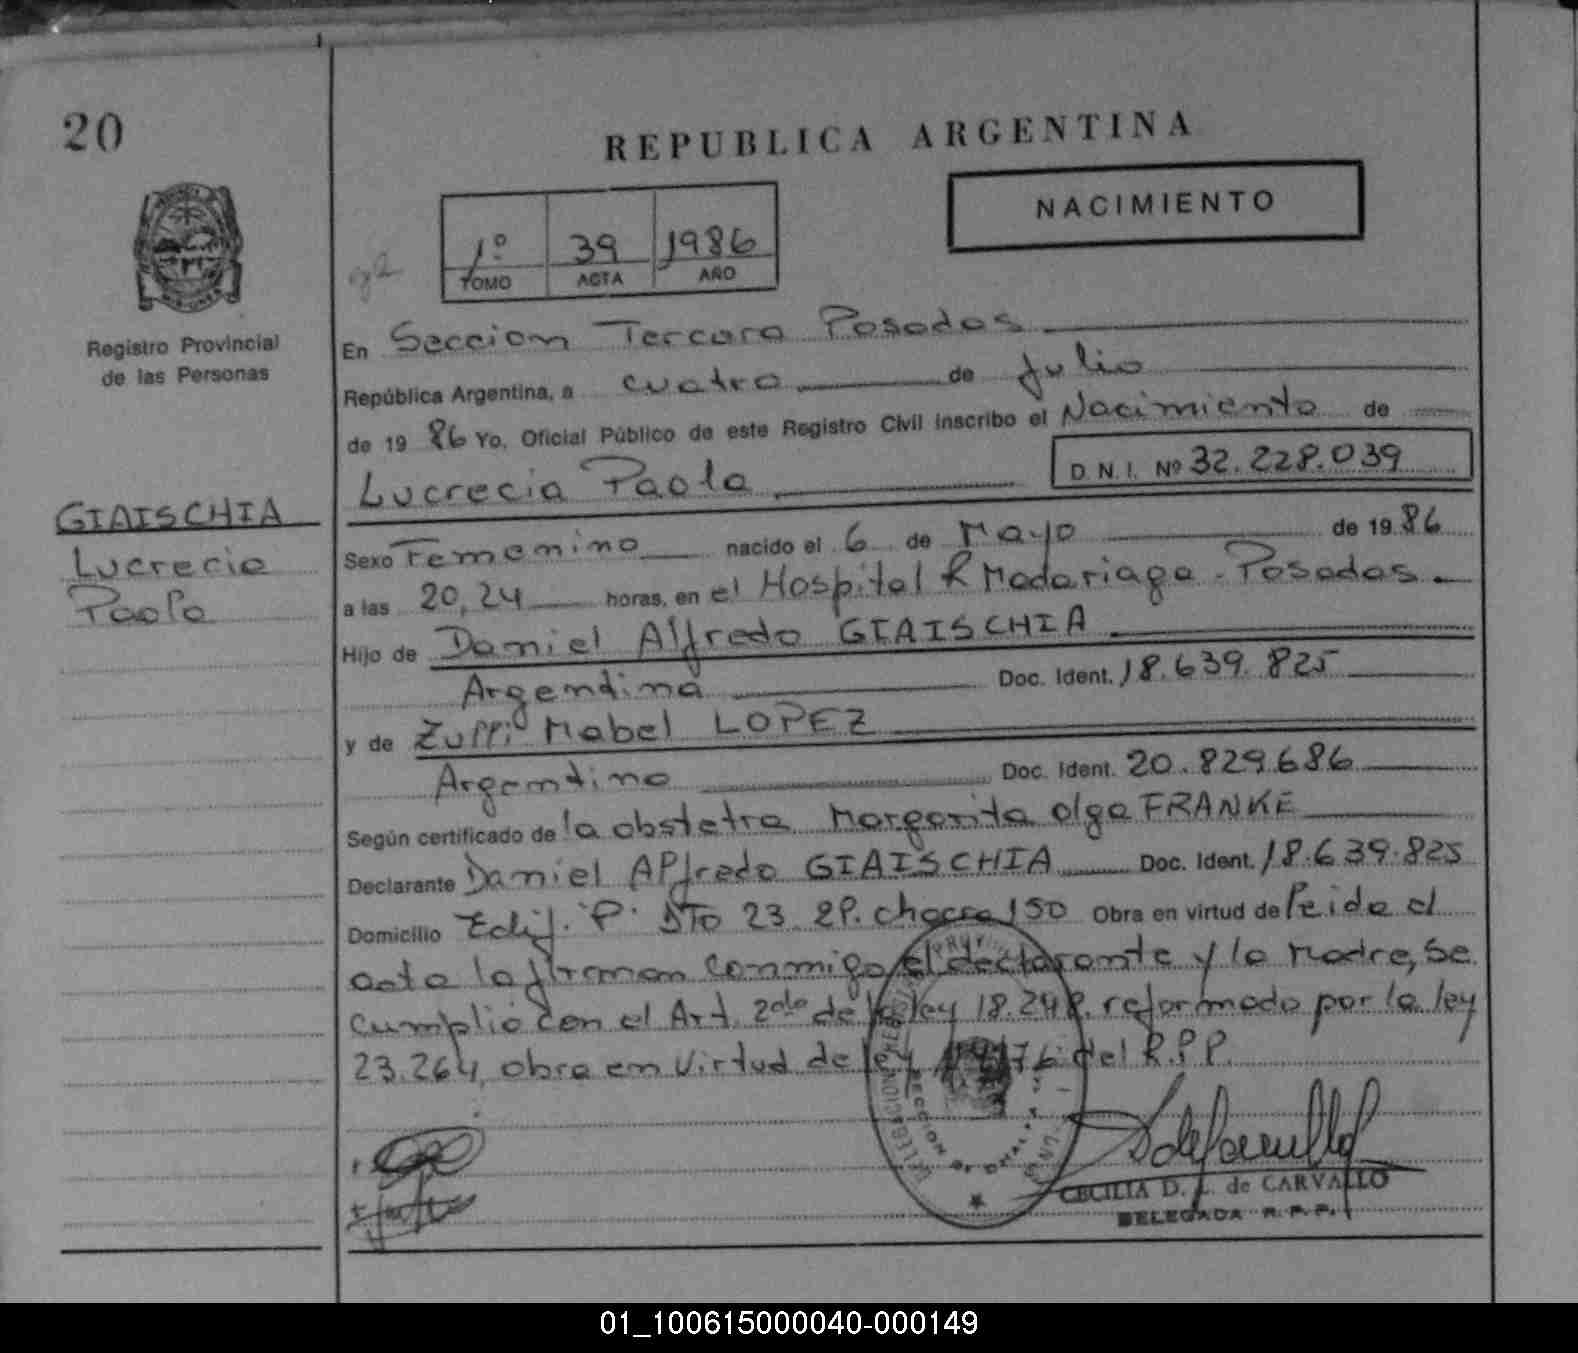 20
REPUBLICA ARGENTINA
NACIMIENTO
1º 39 1986
TOMO ACTA AÑO
Registro Provincial
de las Personas
En Seccion Tercera Posadas
República Argentina, a cuatro de Julio
de 19 86 Yo, Oficial Público de este Registro Civil inscribo el Nacimiento de
Lucrecia Paola D.N.I. Nº 32.228.039
GIAISCHIA
Lucrecia
Paola
Sexo Femenino nacido el 6 de Mayo de 19 86
a las 20,24 horas, en el Hospital R Madariaga - Posadas
Hijo de Daniel Alfredo GIAISCHIA
Argentina Doc. Ident. 18.639.825
y de Zulli Mabel LOPEZ
Argentina Doc. Ident. 20.829.686
Según certificado de la obstetra Margarita Olga FRANKE
Declarante Daniel Alfredo GIAISCHIA Doc. Ident. 18.639.825
Domicilio Edif. P. DTO 23 2P. chacra 150 Obra en virtud de Leida el
acta la firman conmigo el declarante y la Madre, se
cumplio con el Art. 2do de la ley 18.248. reformado por la ley
23.264, obra en virtud de ley del R.P.P.
CECILIA D. L. de CARVALLO
DELEGADA R.P.P.
01_100615000040-000149